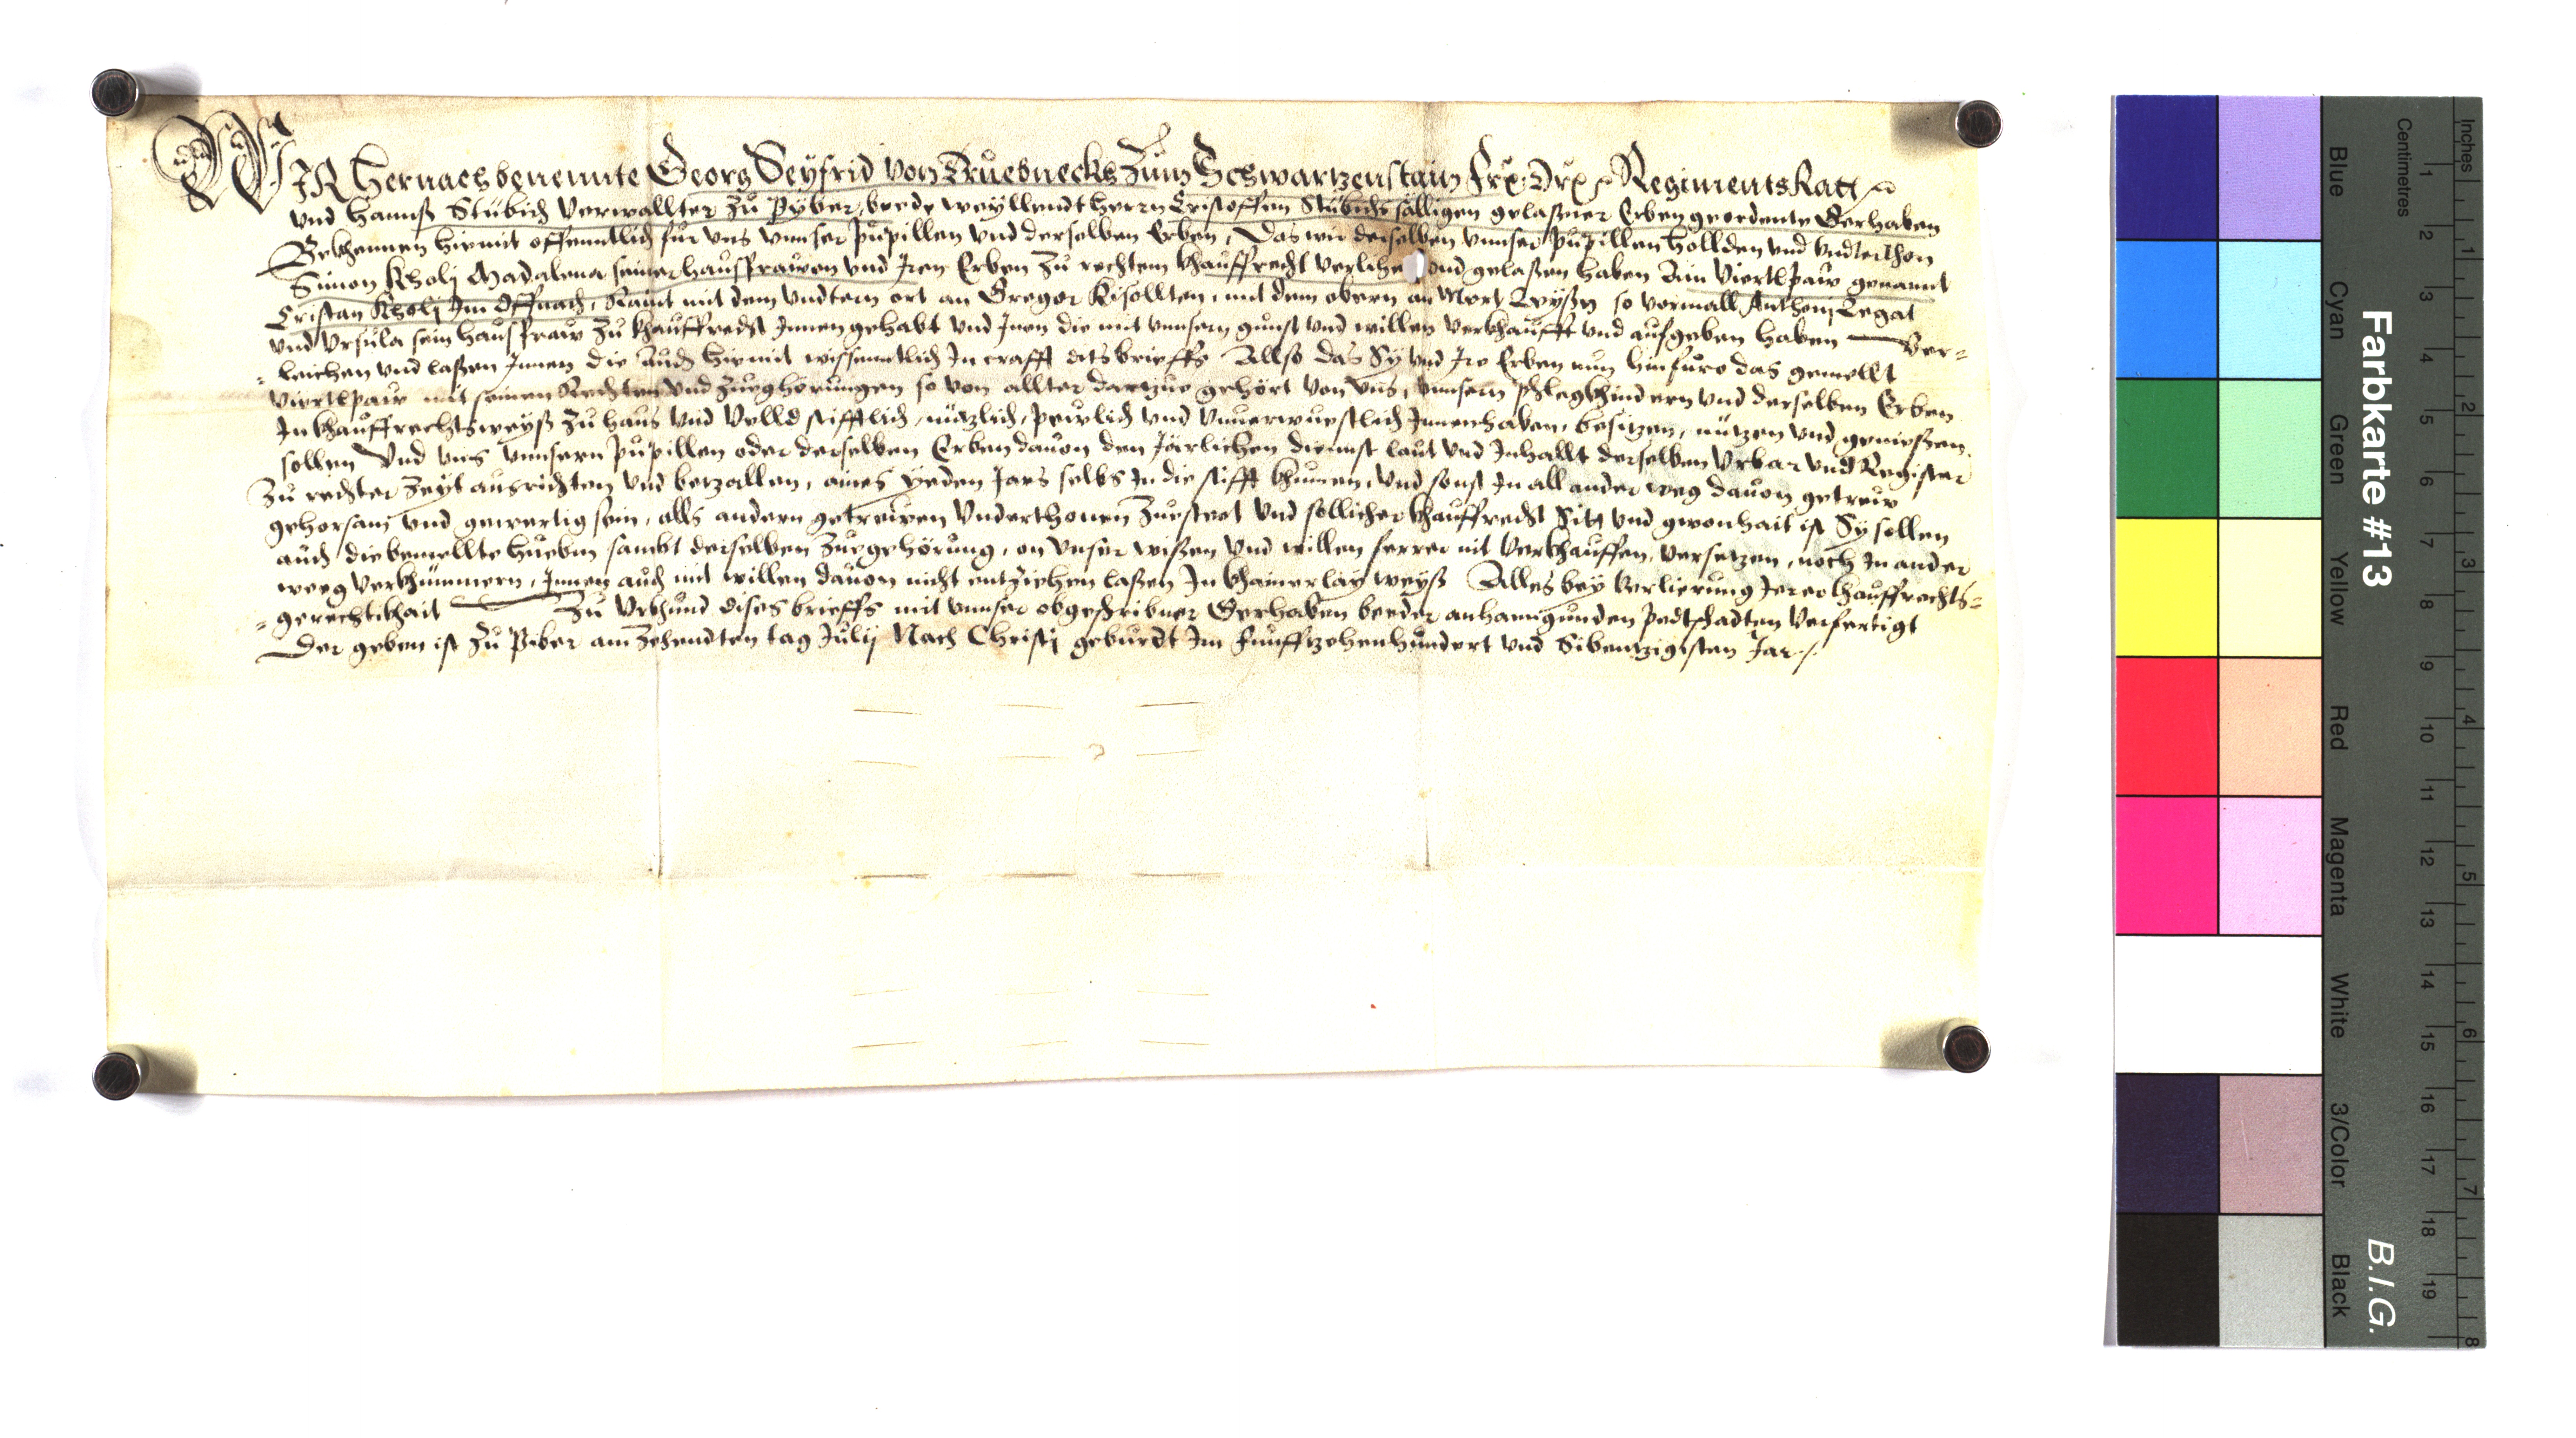 WIR Hernachbenennte Georg Seyfrid von Triebneckh Zum Schwartzenstain Frx: Drx Regiments Ratt
vnd Hannß Stübich Verwallter Zu Pyber, beede weyllendt herrn Cristoffen Stübichs sälligen gelaßner Erben geordente Gerhaben
Bekhennen hiemit offenntlich für vns vnnser Pupillen vnd derselben Erben, Das wir derselben vnnser Pupillen hollden vnd vndterthon
Simon Kholj Madalena seiner hausfrawen vnd Jren Erben Zu rechtem khauffrecht verlihe vnd gelaßen haben Ain Viertlpaw genannt
Cristan Kholj Jm Offnach, Raint mit dem vndtern ort an Gregor Kisollten, mit dem obern an Mert so vormall Anthonj Legat
vnd Vrsula sein hausfraw Zu khauffrecht Jnnen gehabt vnd Jnen die mit vnnsern gunst vnd willen verkhaufft vnd aufgeben haben Ver=
=leichen vnd laßen Jnnen die Auch hiemit wissenntlich Jn crafft dits brieffs Allso das Sy vnd Jre Erben nun hinfüro das gemellt
Viertlpaw mit seinen Rechten vnd Zueghörungen so von allter dartzue gehört von vns, vnnsern Phlegkhindern vnd derselben Erben
Jn khauffrechtsweyß Zu haus vnd Velld stifftlich, nützlich, pewlich vnd vnuerwuestlich Jnnenhaben, besitzen, nützen vnd genießen
sollen Vnd vns vnnsern Pupillen oder derselben Erben dauon den Järlichen diennst laut vnd Jnhallt derselben Vrbar vnd Register
Zu rechter Zeyt ausrichten vnd betzallen, aines yeden Jars selbs Jn die stifft khumen, vnd sonst Jn all ander weg dauon getrew
gehorsam vnd gewertig sein, alls andern getrewen Vnderthonen Zuesteet vnd sollicher khauffrecht Sitt vnd gwonhait ist Sy sollen
auch die bemellte huebm sambt derselben Zuegehörung, on vnser wißen vnd willen ferrer nit verkhauffen, versetzen, noch Jn ander
weeg verkhümmern, Jnnen auch mit willen dauon nicht entziehen laßen Jn khainerlay weyß Alles bey verlierung Jerer khauffrechts=
=gerechtikhait Zu Vrkhund dises brieffs mit vnnser obgeschribner Gerhaben beeder anhanngunden Pedtschadten verfertigt
Der geben ist Zu Piber am Zehendten tag Julij Nach Christj geburdt Jm Funffzehenhundert vnd Sibentzigisten Jar
Farbkarte #13
B.I.G.
Blue
Cyan
Green
Yellow
Red
Magenta
White
3/Color
Black
Centimetres
1 2 3 4 5 6 7 8 9 10 11 12 13 14 15 16 17 18 19
Inches
1 2 3 4 5 6 7 8